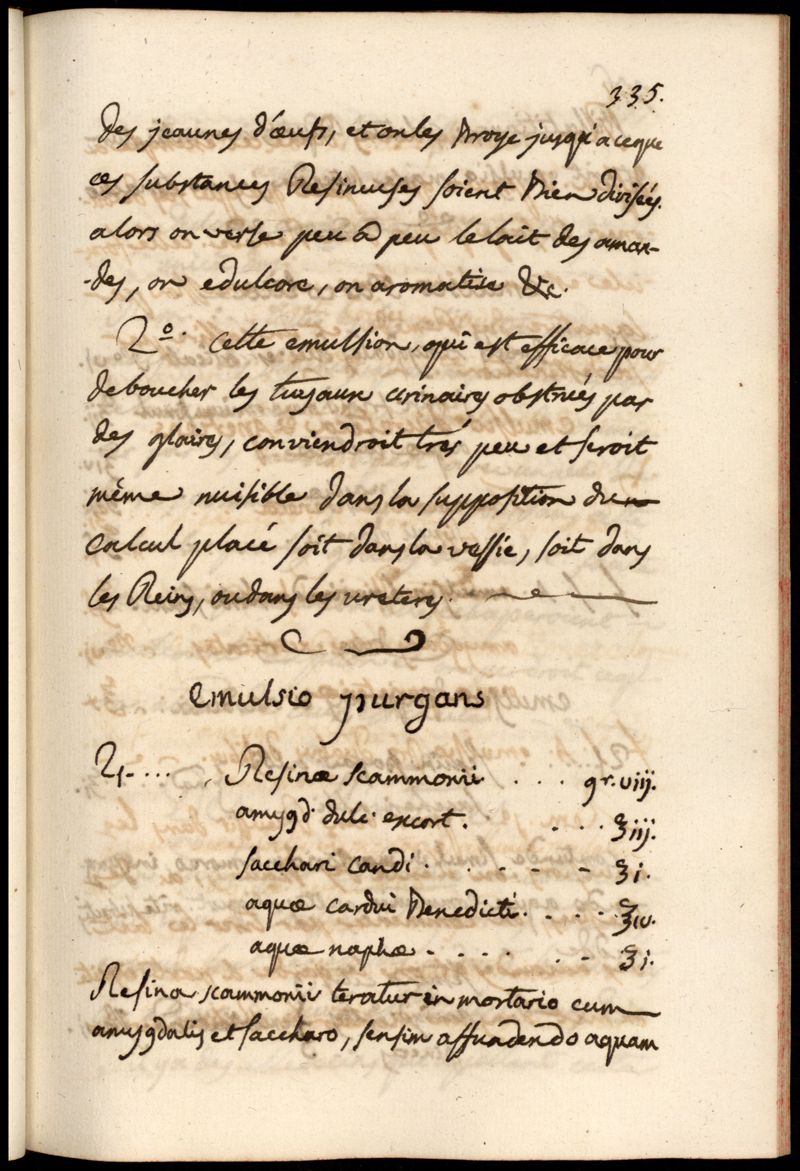 335.
des jeaunes d'œufs, et on les broye jusqu'a ceque
ces substances Resineuses soient bien divisées.
alors on verse peu à peu le lait des aman-
-des, on edulcore, on aromatise &c.
2º. cette emulsion, qui est efficace pour
deboucher les tuyaux urinaires obstrués par
des glaires, conviendroit trés peu et seroit
même nuisible dans la supposition du
calcul placé soit dans la vessie, soit dans
les Reins, ou dans les ureters.
emulsio purgans
♃. ... Resinæ scammonii . . . gr. viij.
amygd. dulc. excort. . . . ʒiij.
sacchari candi . . . . ʒi.
aquæ cardui benedicti . . . . ℥iv.
aquæ naphæ . . . . ʒi.
Resina scammonii teratur in mortario cum
amygdalis et saccharo, sensim affundendo aquam